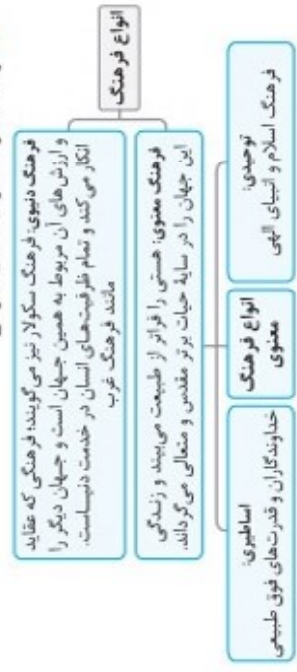 انواع فرهنگ
فرهنگ دنیوی: فرهنگ سکولار نیز می‌گویند؛ فرهنگی که عقاید
و ارزش‌های آن مربوط به همین جهان است و جهان دیگر را
انکار می‌کند و تمام ظرفیت‌های انسان در خدمت دنیاست.
مانند فرهنگ غرب
فرهنگ معنوی: هستی را فراتر از طبیعت می‌بیند و زندگی
این جهان را در سایهٔ حیات برتر مقدس و متعالی می‌گرداند.
توحیدی:
فرهنگ اسلام و انبیای الهی
انواع فرهنگ
معنوی
اساطیری:
خداوندگاران و قدرت‌های فوق طبیعی